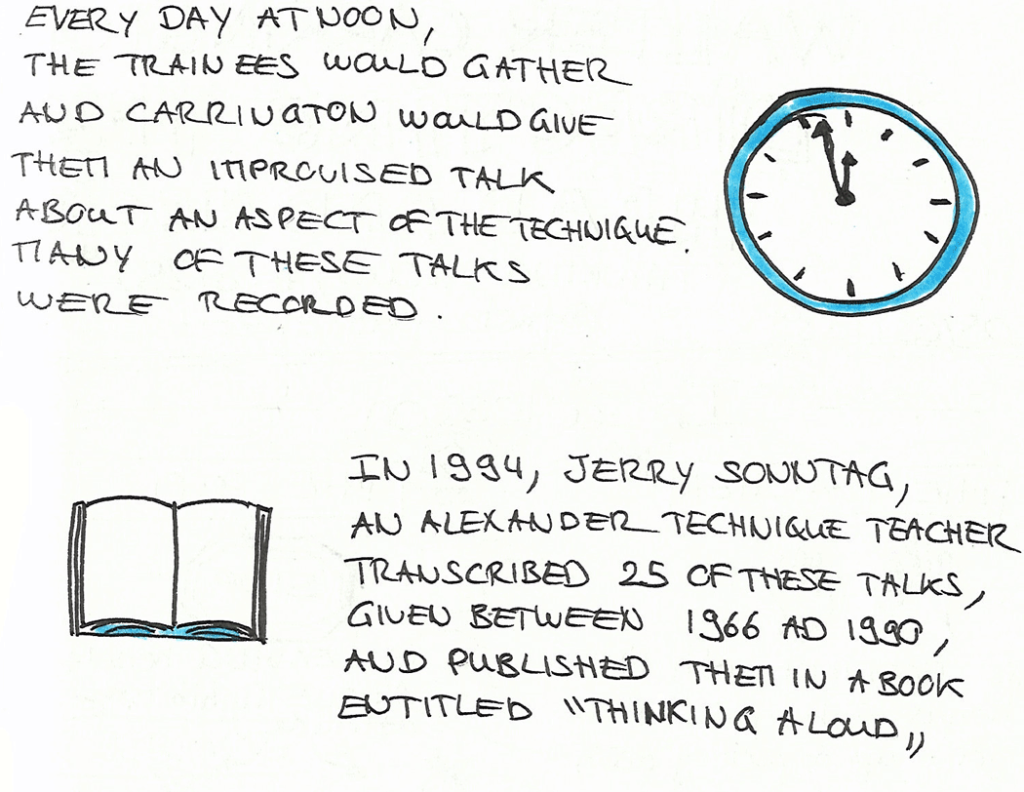 EVERY DAY AT NOON,
THE TRAINEES WOULD GATHER
AND CARRINGTON WOULD GIVE
THEM AN IMPROVISED TALK
ABOUT AN ASPECT OF THE TECHNIQUE.
MANY OF THESE TALKS
WERE RECORDED.
IN 1994, JERRY SONNTAG,
AN ALEXANDER TECHNIQUE TEACHER
TRANSCRIBED 25 OF THESE TALKS,
GIVEN BETWEEN 1966 AD 1990,
AND PUBLISHED THEM IN A BOOK
ENTITLED "THINKING ALOUD"